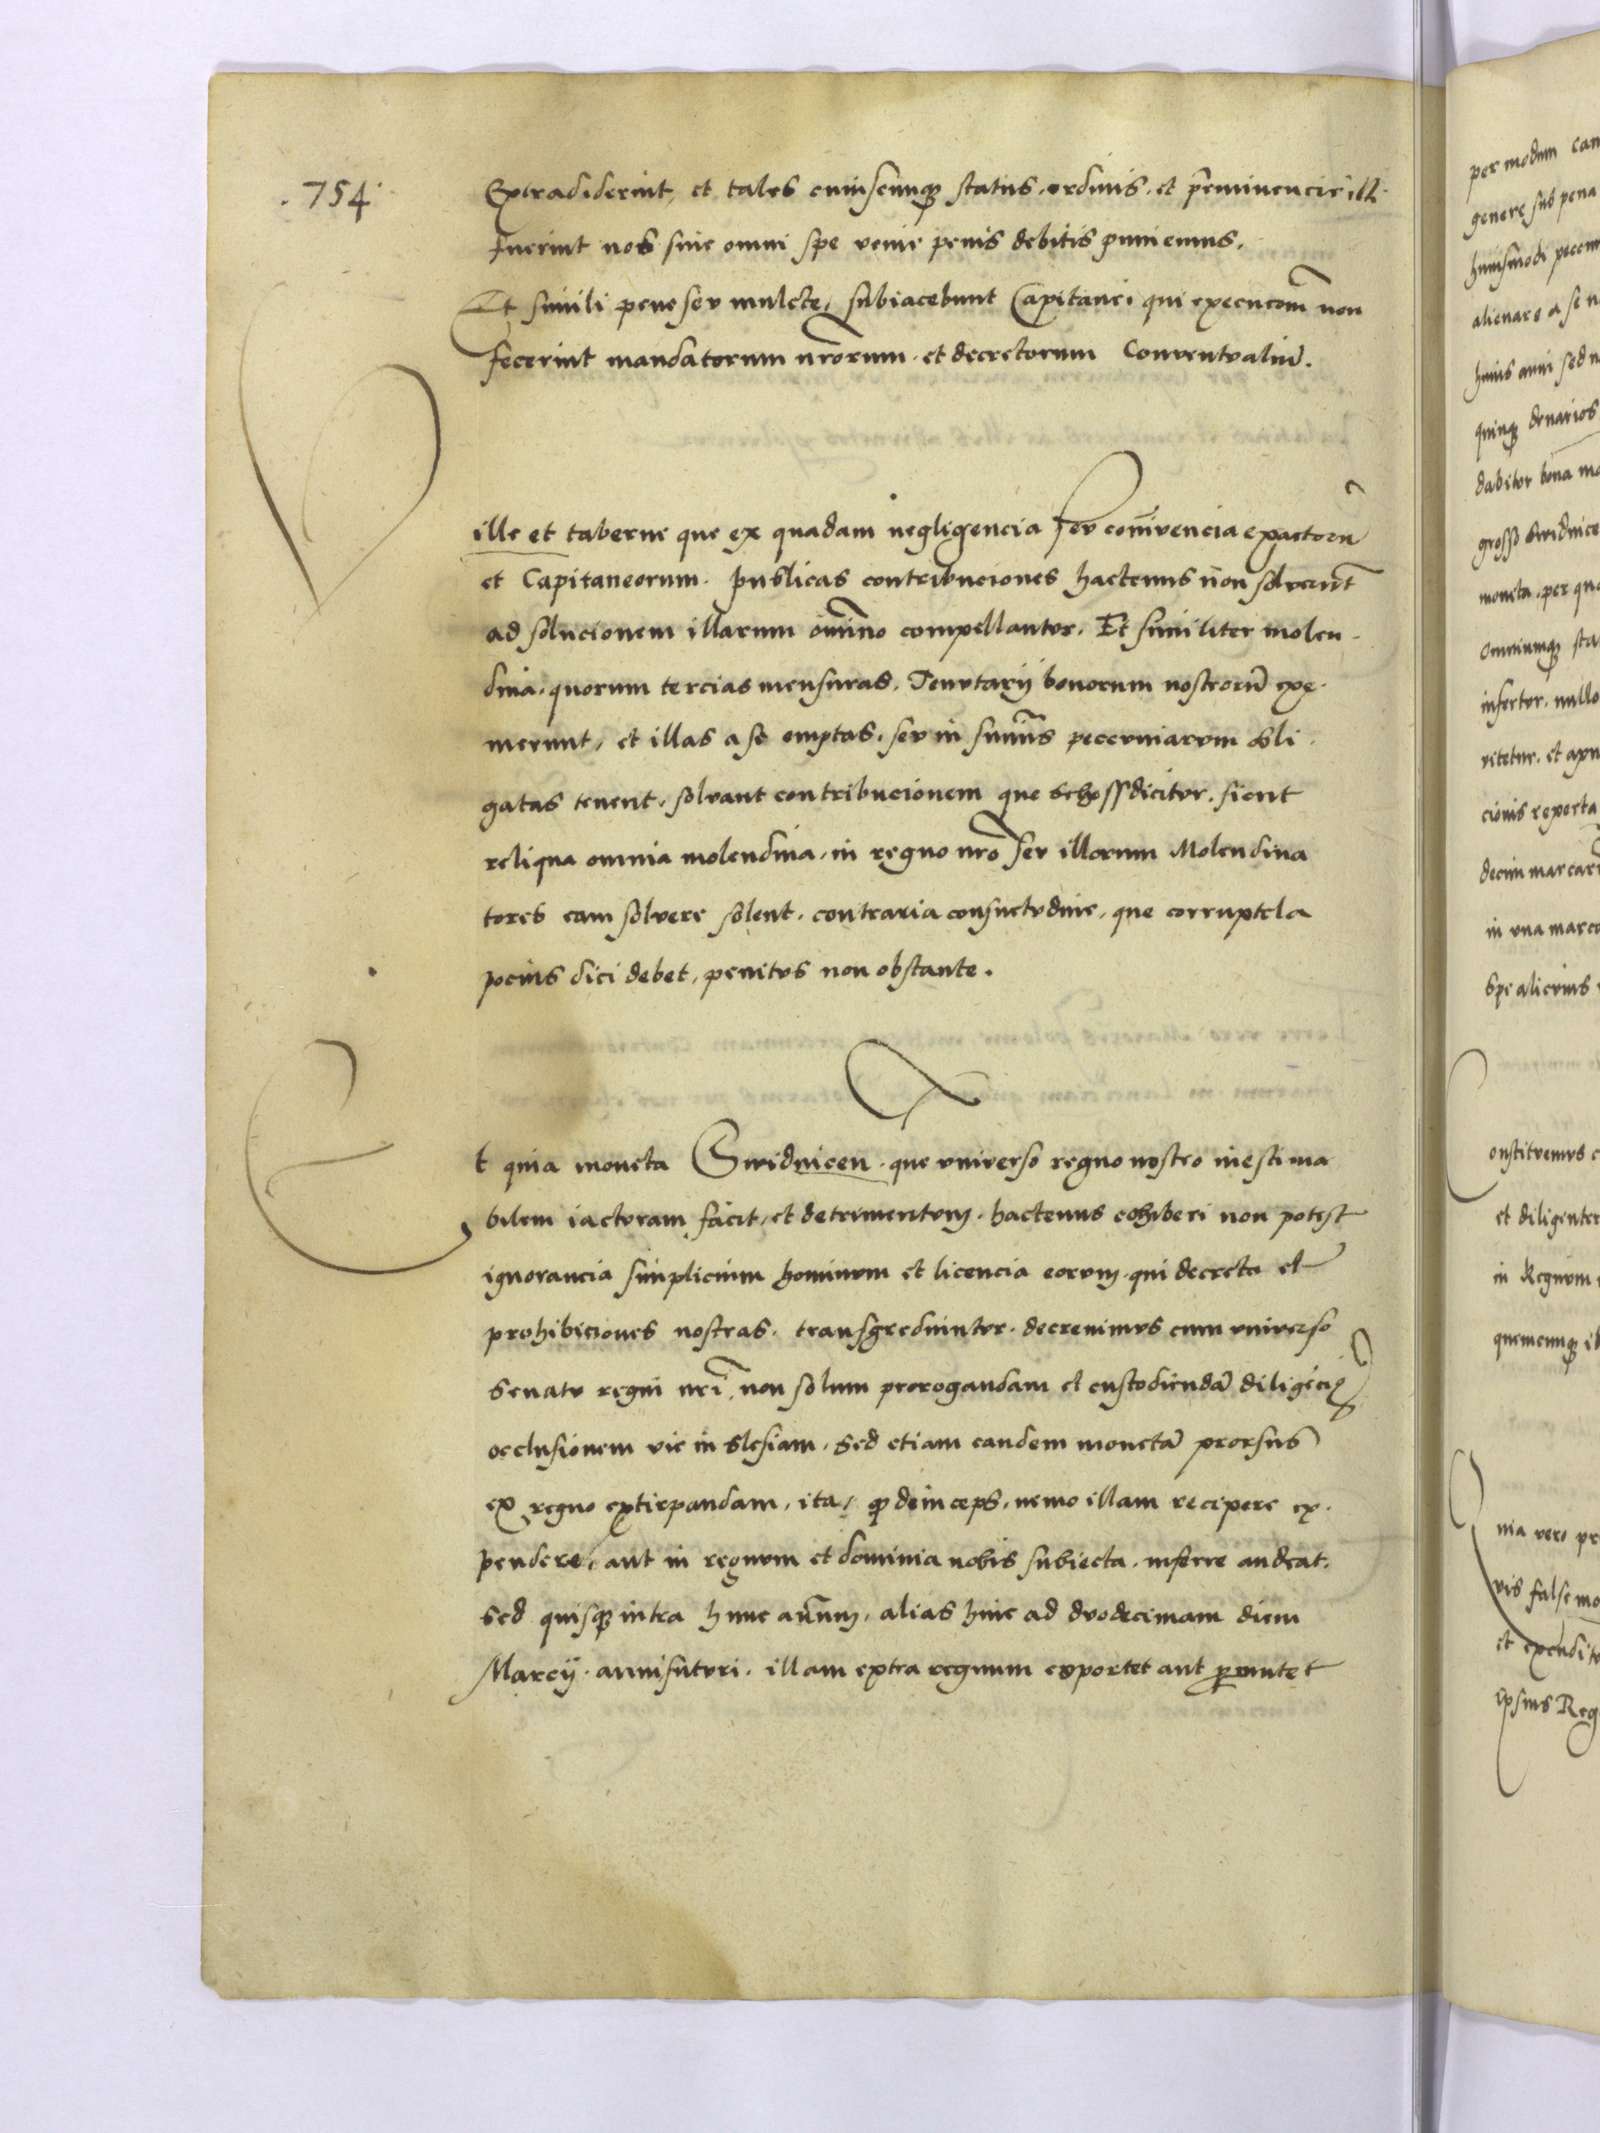 .754.
Extradiderint, et tales cuiuscunq status. ordinis. et preminencie ill.
fuerint nos sine omni spe venie penis debitis puniemus.
Et simili pene seu mulcte, subiacebunt Capitanei qui execucom non
fecerint mandatorum nrorum. et decretorum Conventualiu.
V ille et taberne que ex quadam negligencia seu coniuencia exactoru
et Capitaneorum. publicas contribuciones hactenus non soluerunt
ad solucionem illarum omnino compellantur. Et similiter molen-
dina. quorum tercias mensuras. Tenutarij bonorum nostroru exe-
merunt, et illas a se emptas. seu in summis pecuniarum obli-
gatas tenent. soluant contribucionem que schoss dicitur. sicut
reliqua omnia molendina, in regno nro seu illorum Molendina
tores eam soluere solent. contraria consuetudine, que corruptela
pocius dici debet, penitus non obstante.
E t quia moneta Swidnicen. que vniuerso regno nostro inestima
bilem iacturam facit, et detrimentum. hactenus cohiberi non potest
ignorancia simplicium hominum et licencia eorum. qui decreta et
prohibiciones nostras. transgrediuntur. decreuimus cum vniuerso
Senatu regni nri, non solum prorogandam et custodienda diligecius
occlusionem vie in Slesiam. Sed etiam eandem moneta prorsus
ex regno extirpandam, ita, q deinceps, nemo illam recipere ex-
pendere, aut in regnum et dominia nobis subiecta. inferre audeat.
Sed quisq intra hunc annum, alias hinc ad duodecimam diem
Marcij. anni futuri. illam extra regnum exportet aut permutet
per modum
genere sub pena
huiusmodi
alienare a se
huius anni sed
quinq denarios
dabitur bona
gross Swidnice
moneta, per
insertur. nullo
cionis reperta
in vna
onstituemus
et diligenter
in Regnum
quemcunq
nia vero
vis false
ipsius